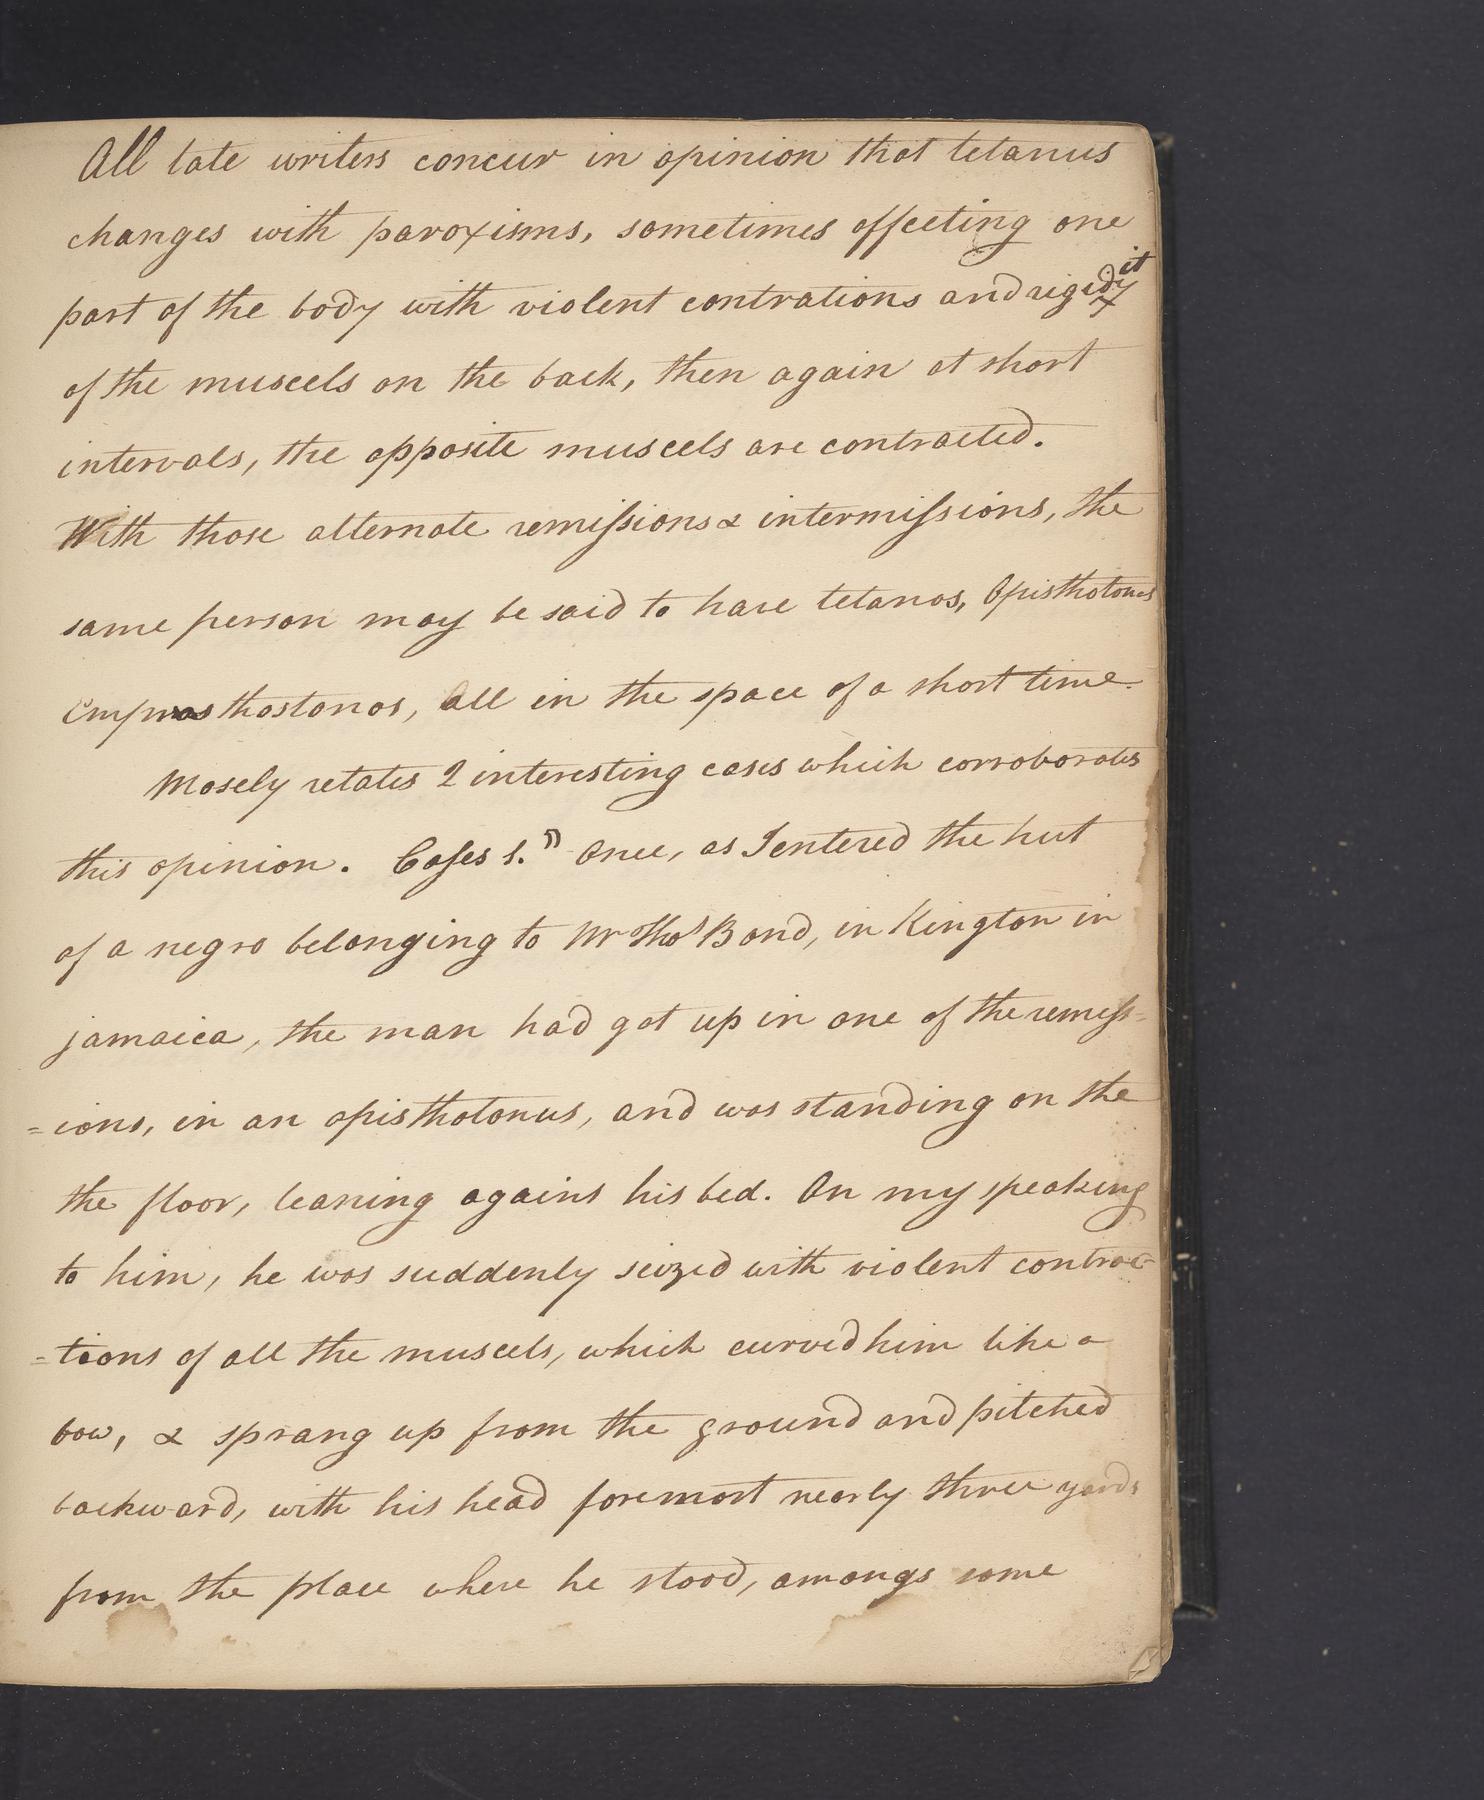 All late writers concur in opinion that tetanus
changes with paroxisms, sometimes affecting one
part of the body with violent contrations and rigidity
of the muscels on the back, then again at short
intervals, the opposite muscels are contracted.
With those alternate remissions & intermissions, the
same person may be said to have tetanos, Opisthotonos
Emprosthostonos, all in the space of a short time.
Mosely retates 2 interesting cases which corroborates
this opinion. Cases 1." Once, as I entered the hut
of a negro belonging to Mr Thos Bond, in Kington in
jamaica, the man had got up in one of the remiss=
=ions, in an opisthotonus, and was standing on the
the floor, leaning agains his bed. On my speaking
to him, he was suddenly seized with violent contrac=
=tions of all the muscels, which curved him like a
bow, & sprang up from the ground and pitched
backward, with his head foremost nearly three yards
from the place where he stood, amongs some